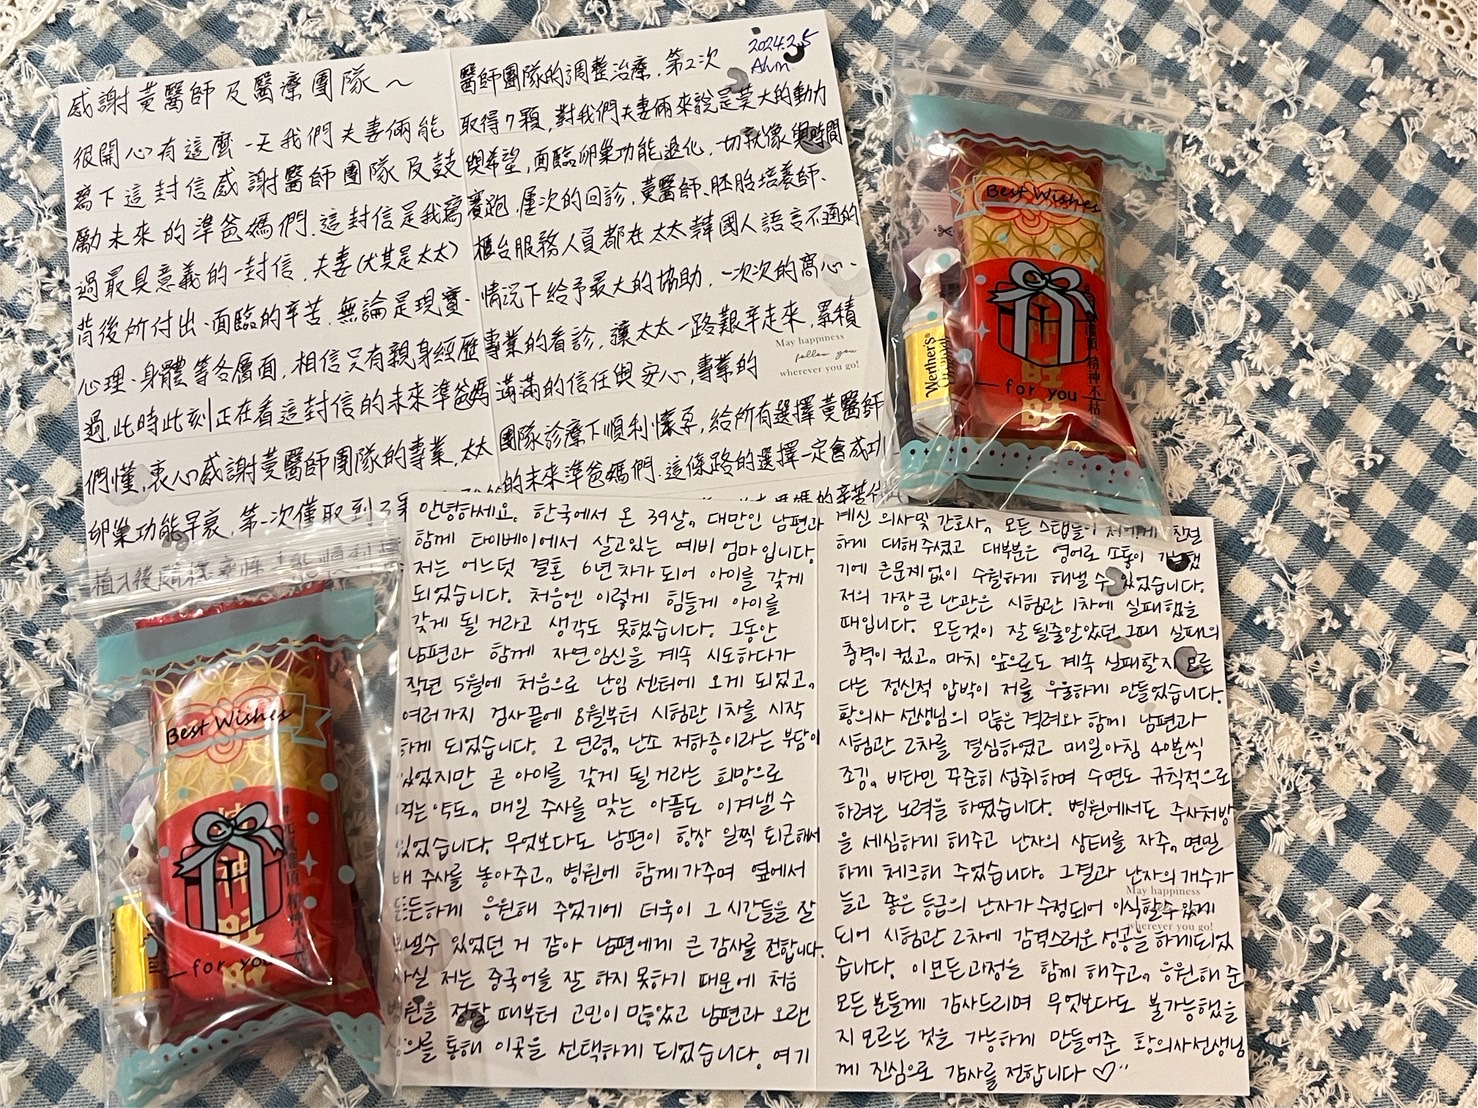 2024.2.5
Alvin
感謝黃醫師及醫療團隊～
很開心有這麼一天我們夫妻倆能
寫下這封信感謝醫師團隊及鼓
勵未來的準爸媽們.這封信是我寫
過最具意義的一封信.夫妻(尤其是太太)
背後所付出、面臨的辛苦.無論是現實、
心理、身體等各層面,相信只有親身經歷
過,此時此刻正在看這封信的未來準爸媽
們懂,衷心感謝黃醫師團隊的專業,太太
卵巢功能早衰,第一次僅取到3
植入後
醫師團隊的調整治療,第2次
取得7顆,對我們夫妻倆來說是莫大的動力
與希望,面臨卵巢功能退化,一切就像與時間
賽跑,屢次的回診,黃醫師、胚胎培養師、
櫃台服務人員都在太太韓國人語言不通的
情況下給予最大的協助,一次次的窩心、
專業的看診,讓太太一路艱辛走來,累積
滿滿的信任與安心,專業的
團隊診療下順利懷孕,給所有選擇黃醫師
的未來準爸媽們.這條路的選擇一定會成功
May happiness
follow you
wherever you go!
안녕하세요. 한국에서 온 39살, 대만인 남편과
함께 타이베이에서 살고있는 예비 엄마입니다.
저는 어느덧 결혼 6년차가 되어 아이를 갖게
되었습니다. 처음엔 이렇게 힘들게 아이를
갖게 될 거라고 생각도 못했습니다. 그동안
남편과 함께 자연임신을 계속 시도하다가
작년 5월에 처음으로 난임 센터에 오게 되었고,
여러가지 검사끝에 8월부터 시험관 1차를 시작
하게 되었습니다. 고 연령, 난소 저하증이라는 부담이
있었지만 곧 아이를 갖게 될거라는 희망으로
먹는약도, 매일 주사를 맞는 아픔도 이겨낼 수
있었습니다. 무엇보다도 남편이 항상 일찍 퇴근해서
배 주사를 놓아주고, 병원에 함께 가주며 옆에서
든든하게 응원해 주었기에 더욱이 그 시간들을 잘
보낼수 있었던 거 같아 남편에게 큰 감사를 전합니다.
사실 저는 중국어를 잘 하지 못하기 때문에 처음
병원을 정할 때부터 고민이 많았고 남편과 오랜
상의를 통해 이곳을 선택하게 되었습니다. 여기
계신 의사및 간호사, 모든 스탭들이 저에게 친절
하게 대해주셨고 대부분은 영어로 소통이 가능했
기에 큰문제없이 수월하게 해낼 수 있었습니다.
저의 가장 큰 난관은 시험관 1차에 실패했을
때입니다. 모든것이 잘 될줄알았던 그때 실패의
충격이 컸고, 마치 앞으로도 계속 실패할지 모른
다는 정신적 압박이 저를 우울하게 만들었습니다.
황의사 선생님의 많은 격려와 함께 남편과
시험관 2차를 결심하였고 매일아침 40분씩
조깅, 비타민 꾸준히 섭취하며 수면도 규칙적으로
하려는 노력을 하였습니다. 병원에서도 주사처방
을 세심하게 해주고 난자의 상태를 자주, 면밀
하게 체크해 주었습니다. 그결과 난자의 개수가
늘고 좋은 등급의 난자가 수정되어 이식할수 있게
되어 시험관 2차에 감격스러운 성공을 하게되었
습니다. 이모든과정을 함께 해주고, 응원해 준
모든 분들께 감사드리며 무엇보다도 불가능했을
지 모르는 것을 가능하게 만들어준 황의사선생님
께 진심으로 감사를 전합니다 ♡
May happiness
wherever you go!
Best Wishes
for you
旺
Werther's
Original
Best Wishes
神
旺
旺
for you